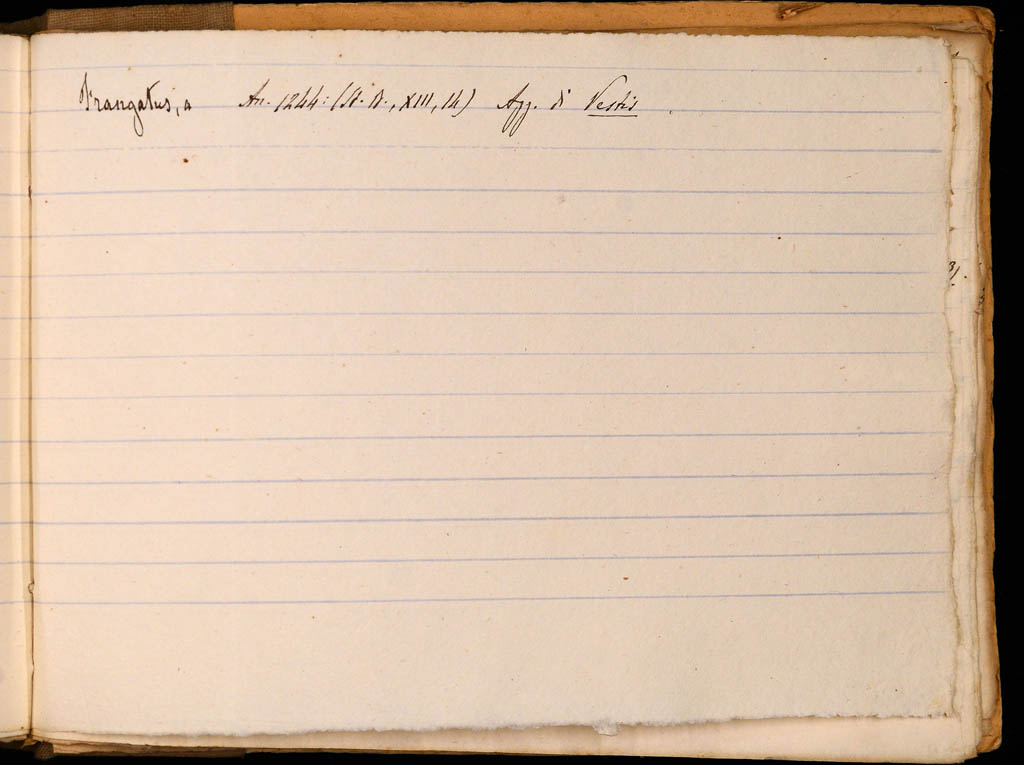 Frangatus, a An. 1244: (St. B., XIII, 14) Agg. di Vestis